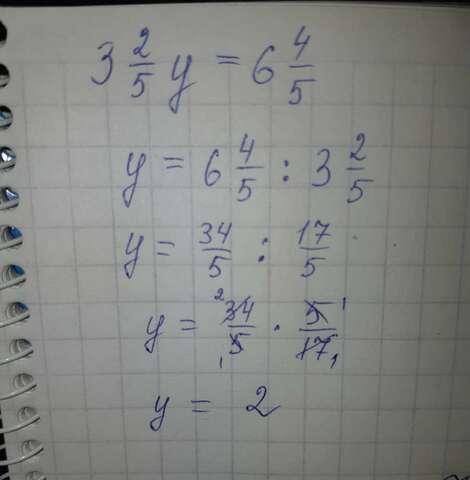 3 2/5 y = 6 4/5
y = 6 4/5 : 3 2/5
y = 34/5 : 17/5
y = ²34/5₁ · 5¹/17₁
y = 2